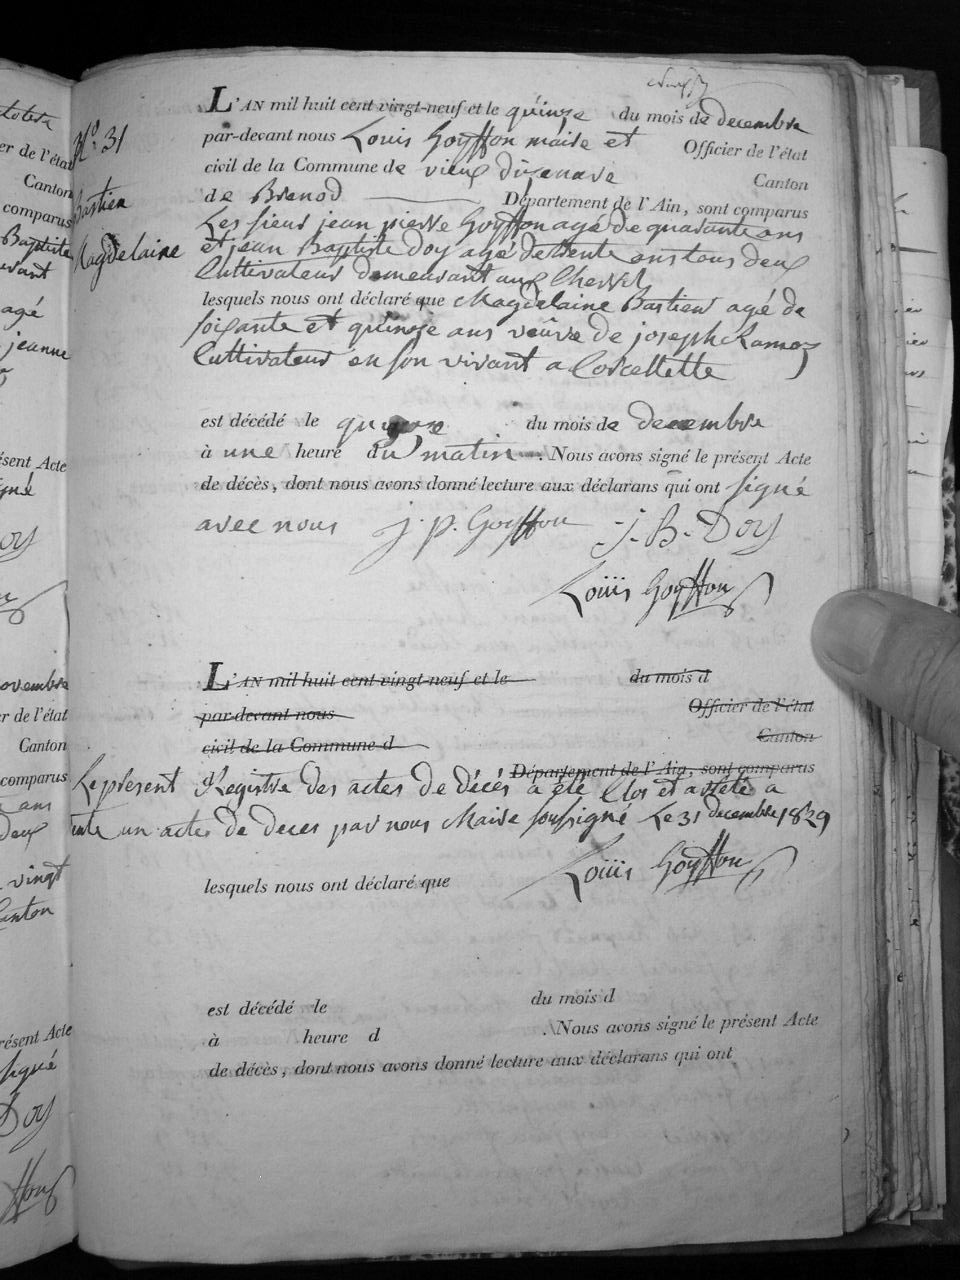 N.° 31
Bastien
Magdelaine
L'AN mil huit cent vingt-neuf et le quinze du mois de decembre
par-devant nous Louis Goyffon maire et Officier de l'état
civil de la Commune de vieux dizenave Canton
de Brenod Département de l'Ain, sont comparus
Les sieur jean pierre Goyffon agé de quarante ans
et jean Baptiste Doy agé de trente ans tous deux
Cultivateur demeurant aux Chevril
lesquels nous ont déclaré que Magdelaine Bastien agé de
soixante et quinze ans veuve de joseph Ramoz
Cultivateur en son vivant a Corcellette
est décédé le quinze du mois de decembre
à une heure du matin. Nous avons signé le présent Acte
de décès, dont nous avons donné lecture aux déclarans qui ont signé
avec nous j. p. Goyffon j. B. Doy
Louis Goyffon
L'AN mil huit cent vingt-neuf et le du mois d
par-devant nous Officier de l'état
civil de la Commune d Canton
d Département de l'Ain, sont comparus
Le present Registre des actes de décés a été Clos et arreté a
trente un actes de deces par nous Maire soussigné Le 31 decembre 1829
lesquels nous ont déclaré que Louis Goyffon
est décédé le du mois d
à heure d .Nous avons signé le présent Acte
de décès, dont nous avons donné lecture aux déclarans qui ont
totere
er de l'état
Canton
comparus
Baptiste
agé
jeanne
ésent Acte
Doy
novembre
er de l'état
Canton
comparus
ans
Deux
vingt
Canton
résent Acte
signé
Doy